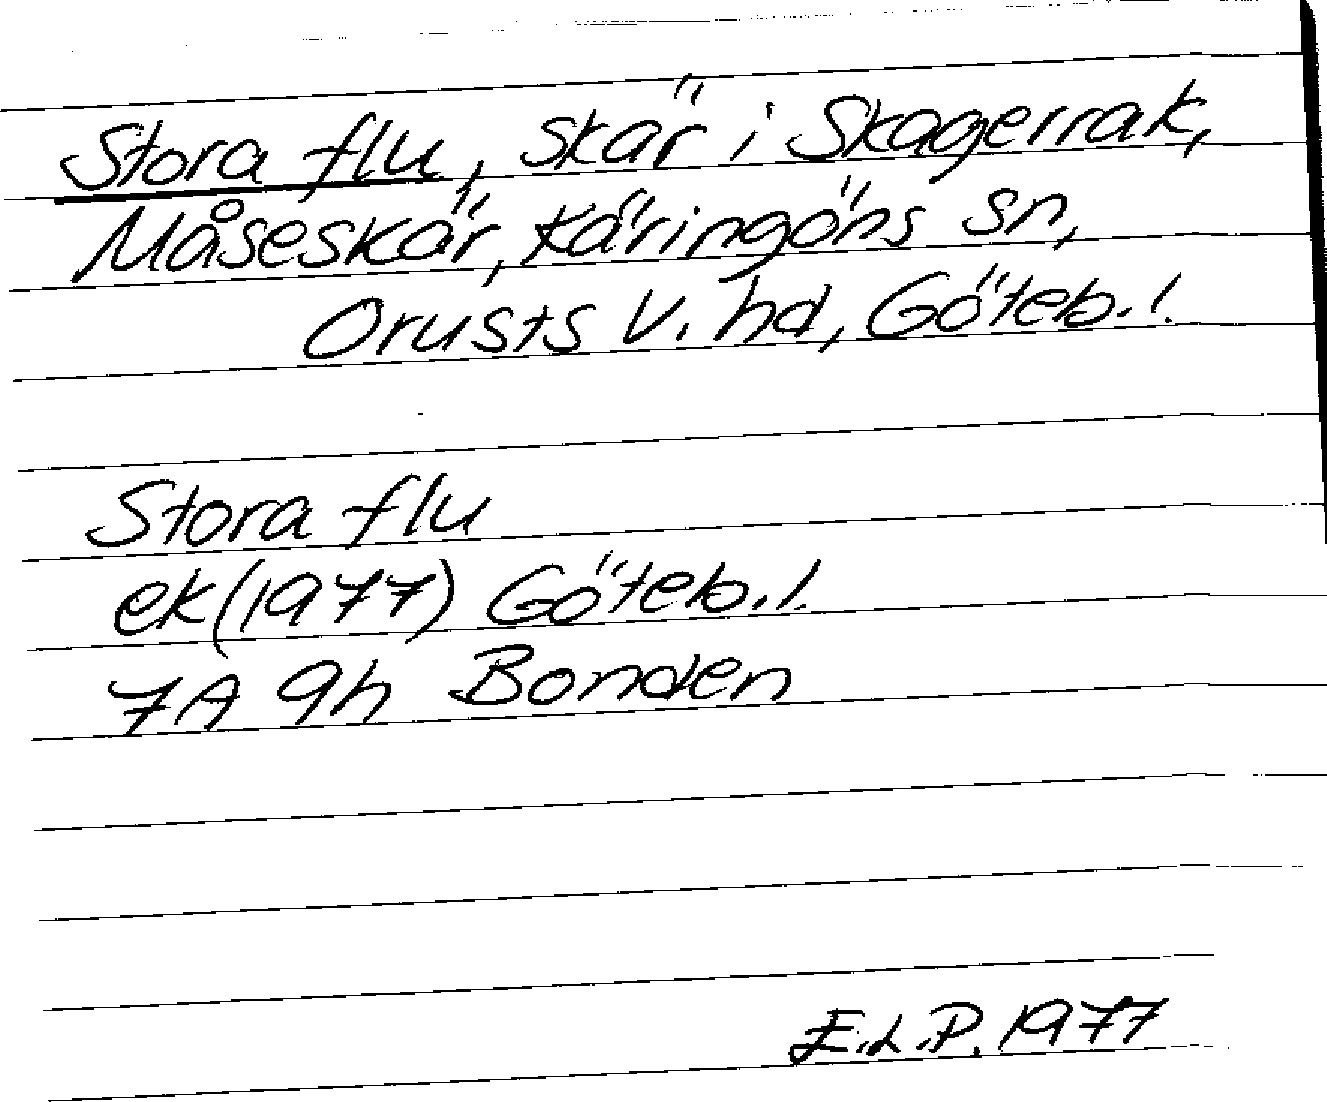 Stora flu, skär i Skagerrak,
Måseskär, Käringöns sn,
Orusts v. hd, Göteb. l.
Stora flu
ek (1977) Göteb. l.
7A 9h Bonden
E.L.P. 1977